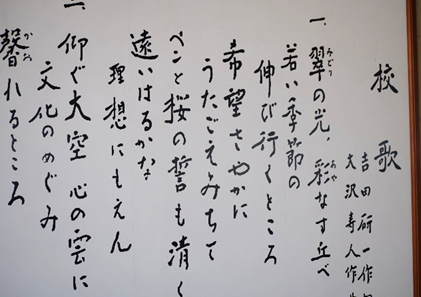 校歌
吉田研一作
大沢寿人作
一、翠の光、彩なす丘べ
若い季節の
伸び行くところ
希望さやかに
うたごえみちて
ペンと桜の誓も清く
遠いはるかな
理想にもえん
二、仰ぐ大空 心の雲に
文化のめぐみ
馨れるところ